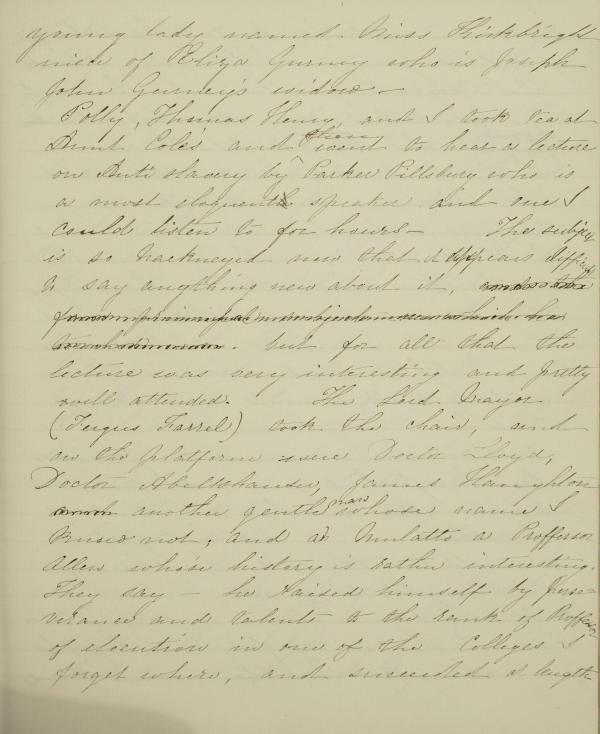 young lady named Miss Thirkbright
niece of Eliza Gurney who is Joseph
John Gurney's widow —
Polly, Thomas Henry, and I took tea at
Aunt Cole's and then went to hear a lecture
on Anti slavery by Parker Pillsbury who is
a most eloquent speaker and one I
could listen to for hours — The subject
is so hackneyed now that it appears difficult
to say anything new about it,
but for all that the
lecture was very interesting and pretty
well attended. The Lord Mayor
(Fergus Farrel) took the chair, and
on the platform were Doctor Lloyd,
Doctor Abeltshauser, James Haughton
another gentleman whose name I
know not, and a Mulatto a Proffessor
Allen whose history is rather interesting.
They say — he raised himself by perse-
verance and talents to the rank of Proffessor
of elocution in one of the Colleges I
forget where, and succeeded at length